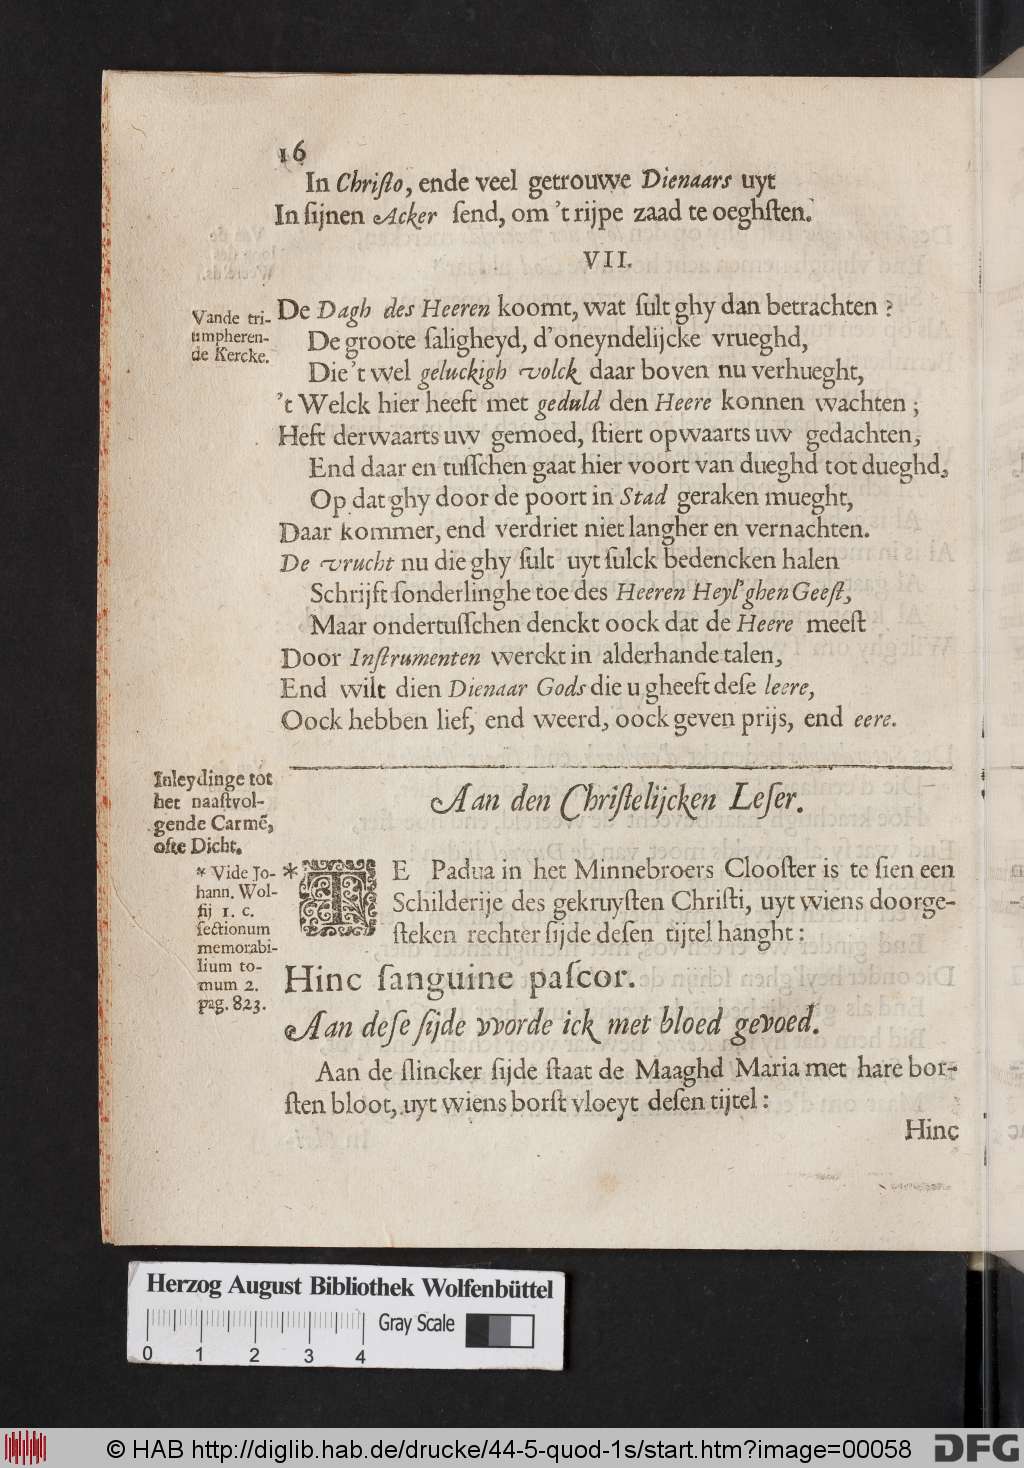 16
In Christo, ende veel getrouwe Dienaars uyt
In sijnen Acker send, om 't rijpe zaad te oeghsten.
VII.
Vande tri-
umpheren-
de Kercke.
De Dagh des Heeren koomt, wat sult ghy dan betrachten ?
De groote saligheyd, d'oneyndelijcke vrueghd,
Die't wel geluckigh volck daar boven nu verhueght,
't Welck hier heeft met geduld den Heere konnen wachten ;
Heft derwaarts uw gemoed, stiert opwaarts uw gedachten,
End daar en tusschen gaat hier voort van dueghd tot dueghd,
Op dat ghy door de poort in Stad geraken mueght,
Daar kommer, end verdriet niet langher en vernachten.
De vrucht nu die ghy sult uyt sulck bedencken halen
Schrijft sonderlinghe toe des Heeren Heyl'ghen Geest,
Maar ondertusschen denckt oock dat de Heere meest
Door Instrumenten werckt in alderhande talen,
End wilt dien Dienaar Gods die u gheeft dese leere,
Oock hebben lief, end weerd, oock geven prijs, end eere.
Inleydinge tot
het naastvol-
gende Carmē,
ofte Dicht.
Aan den Christelijcken Leser.
* Vide Jo-
hann. Wol-
fij 1. c.
sectionum
memorabi-
lium to-
mum 2.
pag. 823.
* TE Padua in het Minnebroers Clooster is te sien een
Schilderije des gekruysten Christi, uyt wiens doorge-
steken rechter sijde desen tijtel hanght :
Hinc sanguine pascor.
Aan dese sijde vvorde ick met bloed gevoed.
Aan de slincker sijde staat de Maaghd Maria met hare bor-
sten bloot, uyt wiens borst vloeyt desen tijtel :
Hinc
Herzog August Bibliothek Wolfenbüttel
Gray Scale
0 1 2 3 4
© HAB http://diglib.hab.de/drucke/44-5-quod-1s/start.htm?image=00058
DFG